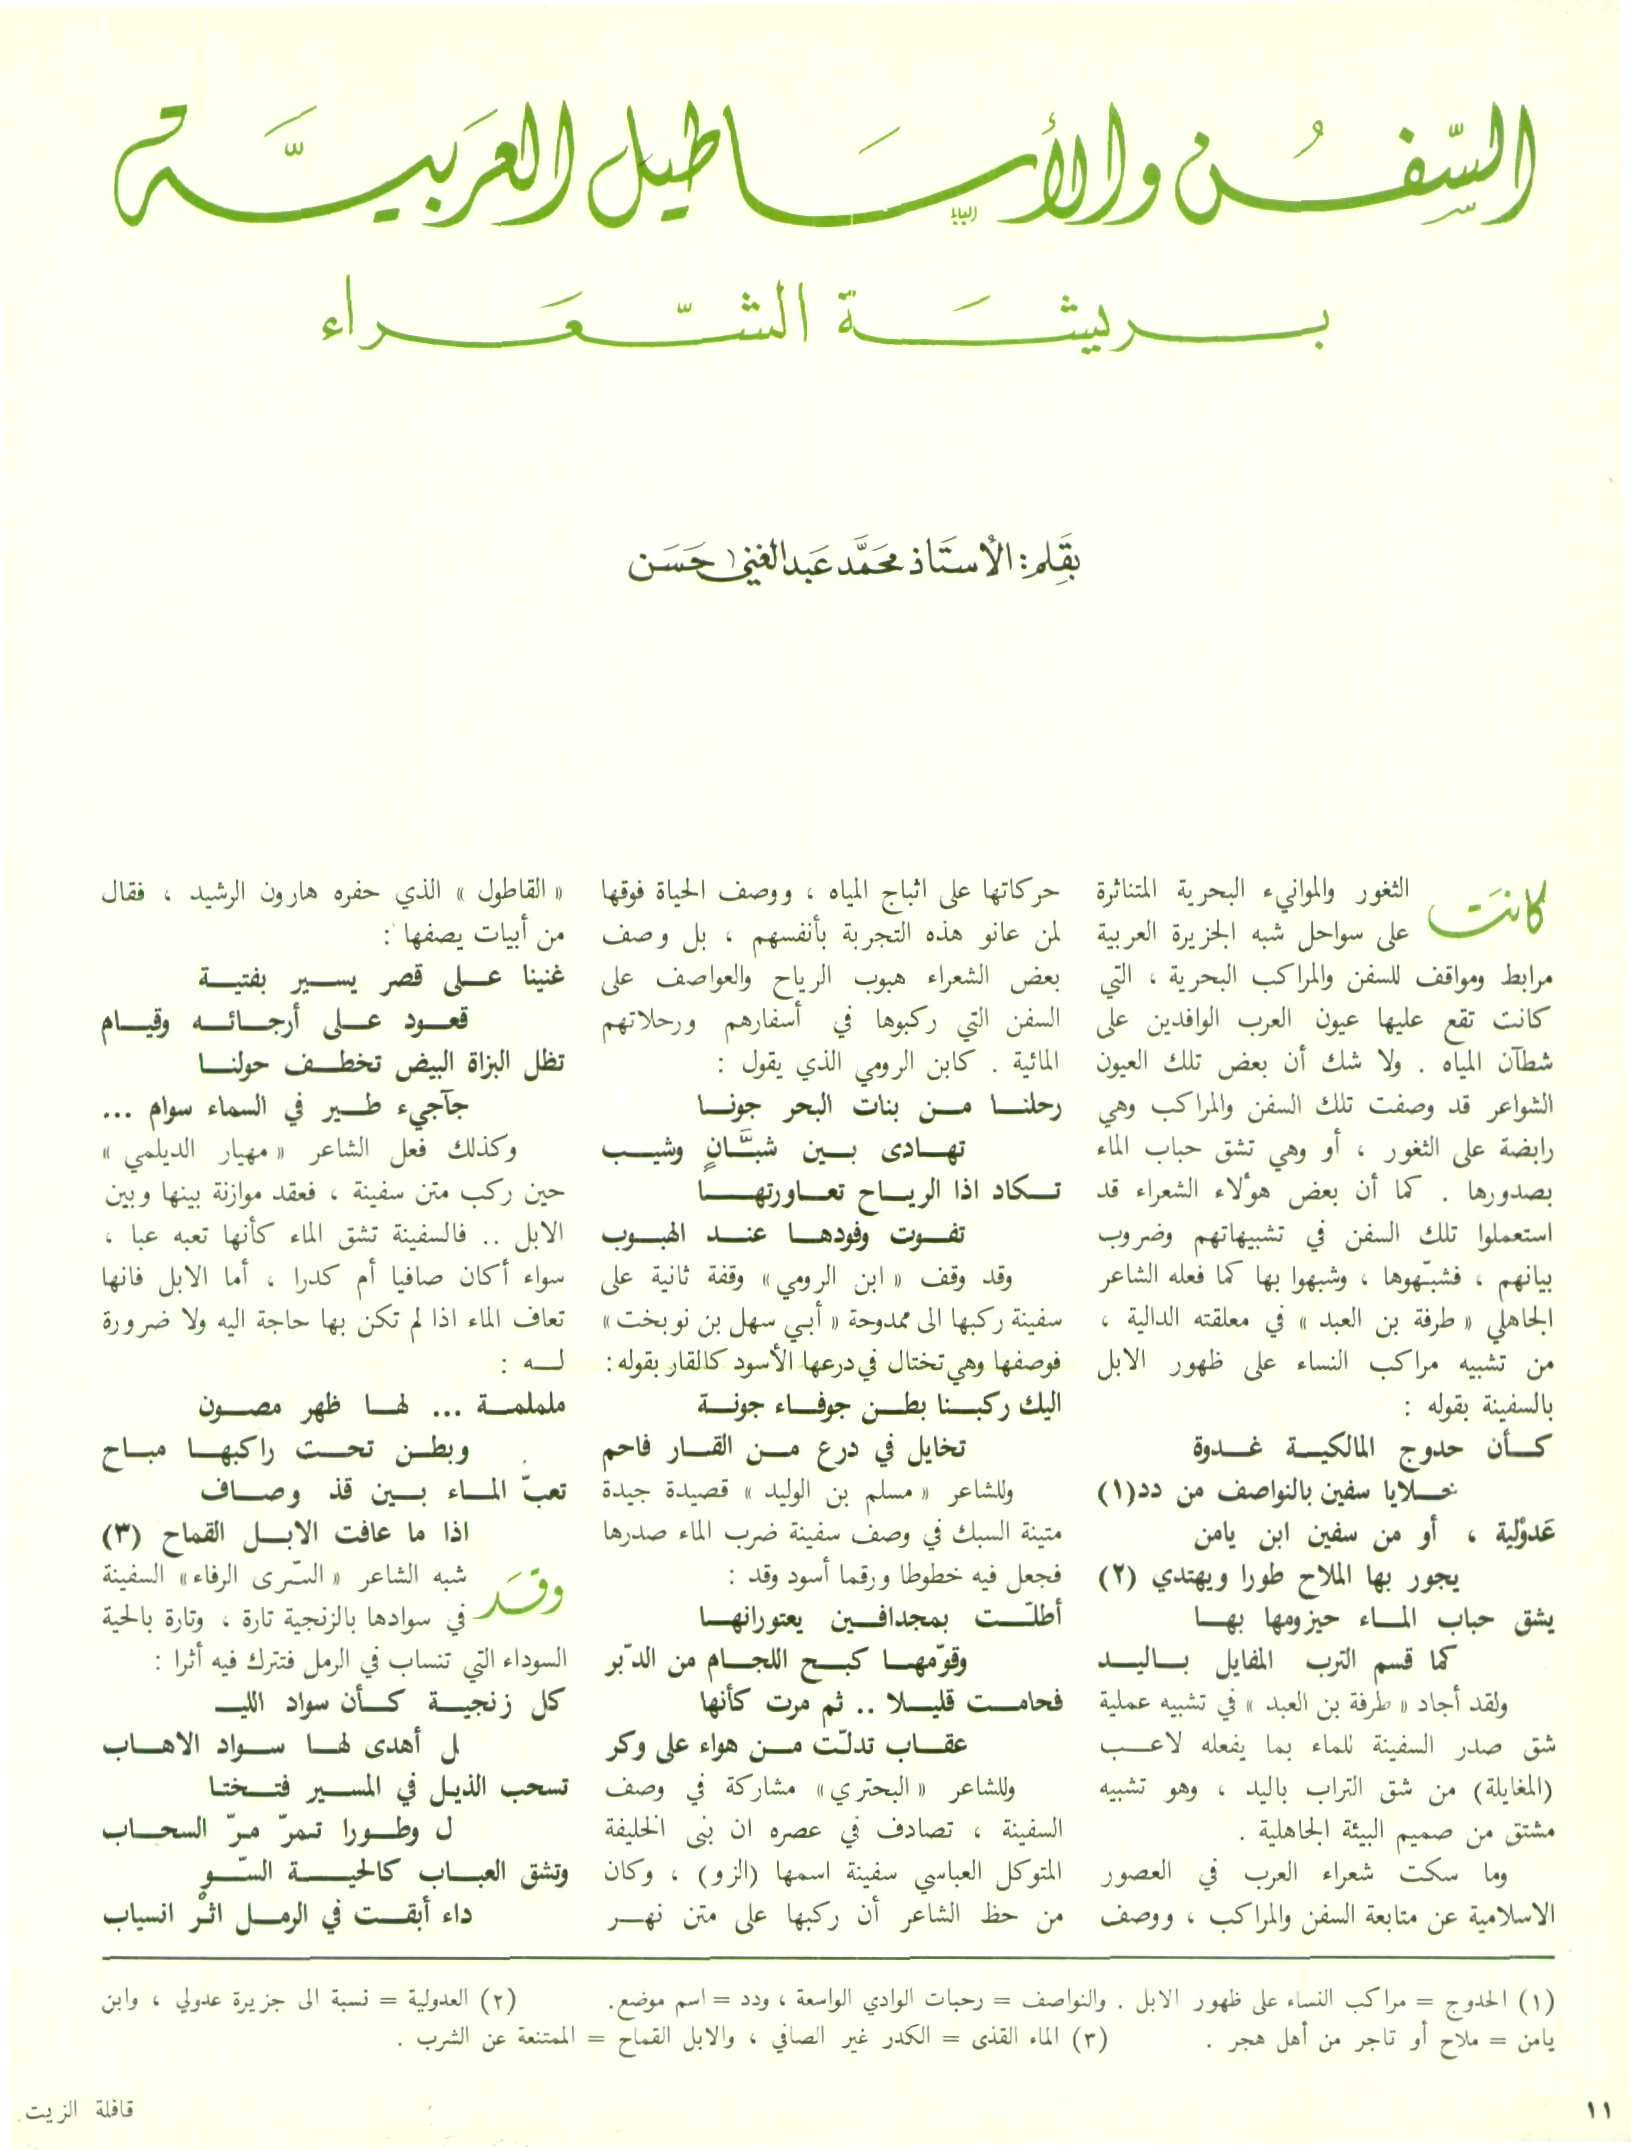 السّفُن والأسَاطيل العَربيَّة
بريشَة الشّعَراء
بقَلم: الأستَاذ محَمَّد عَبد الغني حَسَن
كانَت الثغور والموانيء البحرية المتناثرة
على سواحل شبه الجزيرة العربية
مرابط ومواقف للسفن والمراكب البحرية ، التي
كانت تقع عليها عيون العرب الوافدين على
شطآن المياه . ولا شك أن بعض تلك العيون
الشواعر قد وصفت تلك السفن والمراكب وهي
رابضة على الثغور ، أو وهي تشق حباب الماء
بصدورها . كما أن بعض هؤلاء الشعراء قد
استعملوا تلك السفن في تشبيهاتهم وضروب
بيانهم ، فشبّهوها ، وشبهوا بها كما فعله الشاعر
الجاهلي « طرفة بن العبد » في معلقته الدالية ،
من تشبيه مراكب النساء على ظهور الابل
بالسفينة بقوله :
كأن حدوج المالكية غدوة
خلايا سفين بالنواصف من دد (١)
عَدوْلية ، أو من سفين ابن يامن
يجور بها الملاح طورا ويهتدي (٢)
يشق حباب الماء حيزومها بها
كما قسم الترب المفايل باليد
ولقد أجاد « طرفة بن العبد » في تشبيه عملية
شق صدر السفينة للماء بما يفعله لاعب
(المغايلة) من شق التراب باليد ، وهو تشبيه
مشتق من صميم البيئة الجاهلية .
وما سكت شعراء العرب في العصور
الاسلامية عن متابعة السفن والمراكب ، ووصف
حركاتها على اثباج المياه ، ووصف الحياة فوقها
لمن عانو هذه التجربة بأنفسهم ، بل وصف
بعض الشعراء هبوب الرياح والعواصف على
السفن التي ركبوها في أسفارهم ورحلاتهم
المائية . كابن الرومي الذي يقول :
رحلنا من بنات البحر جونا
تهادى بين شبَّانٍ وشيب
تكاد اذا الرياح تعاورتها
تفوت وفودها عند الهبوب
وقد وقف « ابن الرومي » وقفة ثانية على
سفينة ركبها الى ممدوحة « أبي سهل بن نوبخت »
فوصفها وهي تختال في درعها الأسود كالقار بقوله :
اليك ركبنا بطن جوفاء جونة
تخايل في درع من القار فاحم
وللشاعر « مسلم بن الوليد » قصيدة جيدة
متينة السبك في وصف سفينة ضرب الماء صدرها
فجعل فيه خطوطا ورقما أسود وقد :
أطلّت بمجدافين يعتورانها
وقوّمها كبح اللجام من الدبّر
فحامت قليلا .. ثم مرت كأنها
عقاب تدلّت من هواء على وكر
وللشاعر « البحتري » مشاركة في وصف
السفينة ، تصادف في عصره ان بنى الخليفة
المتوكل العباسي سفينة اسمها (الزو) ، وكان
من حظ الشاعر أن ركبها على متن نهر
« القاطول » الذي حفره هارون الرشيد ، فقال
من أبيات يصفها :
غنينا على قصر يسير بفتية
قعود على أرجائه وقيام
تظل البزاة البيض تخطف حولنا
جآجيء طير في السماء سوام ...
وكذلك فعل الشاعر « مهيار الديلمي »
حين ركب متن سفينة ، فعقد موازنة بينها وبين
الابل .. فالسفينة تشق الماء كأنها تعبه عبا ،
سواء أكان صافيا أم كدرا ، أما الابل فانها
تعاف الماء اذا لم تكن بها حاجة اليه ولا ضرورة
له :
ململمة ... لها ظهر مصون
وبطن تحت راكبها مباح
تعبّ الماء بين قذ وصاف
اذا ما عافت الابل القماح (٣)
وقَد شبه الشاعر « السّرى الرفاء » السفينة
في سوادها بالزنجية تارة ، وتارة بالحية
السوداء التي تنساب في الرمل فتترك فيه أثرا :
كل زنجية كأن سواد الليـ
ل أهدى لها سواد الاهاب
تسحب الذيل في المسير فتختا
ل وطورا تمرّ مرّ السحاب
وتشق العباب كالحية السّو
داء أبقت في الرمل اثرْ انسياب
(١) الحدوج = مراكب النساء على ظهور الابل . والنواصف = رحبات الوادي الواسعة ، ودد = اسم موضع. (٢) العدولية = نسبة الى جزيرة عدولي ، وابن
يامن = ملاح أو تاجر من أهل هجر . (٣) الماء القذى = الكدر غير الصافي ، والابل القماح = الممتنعة عن الشرب .
١١
قافلة الزيت